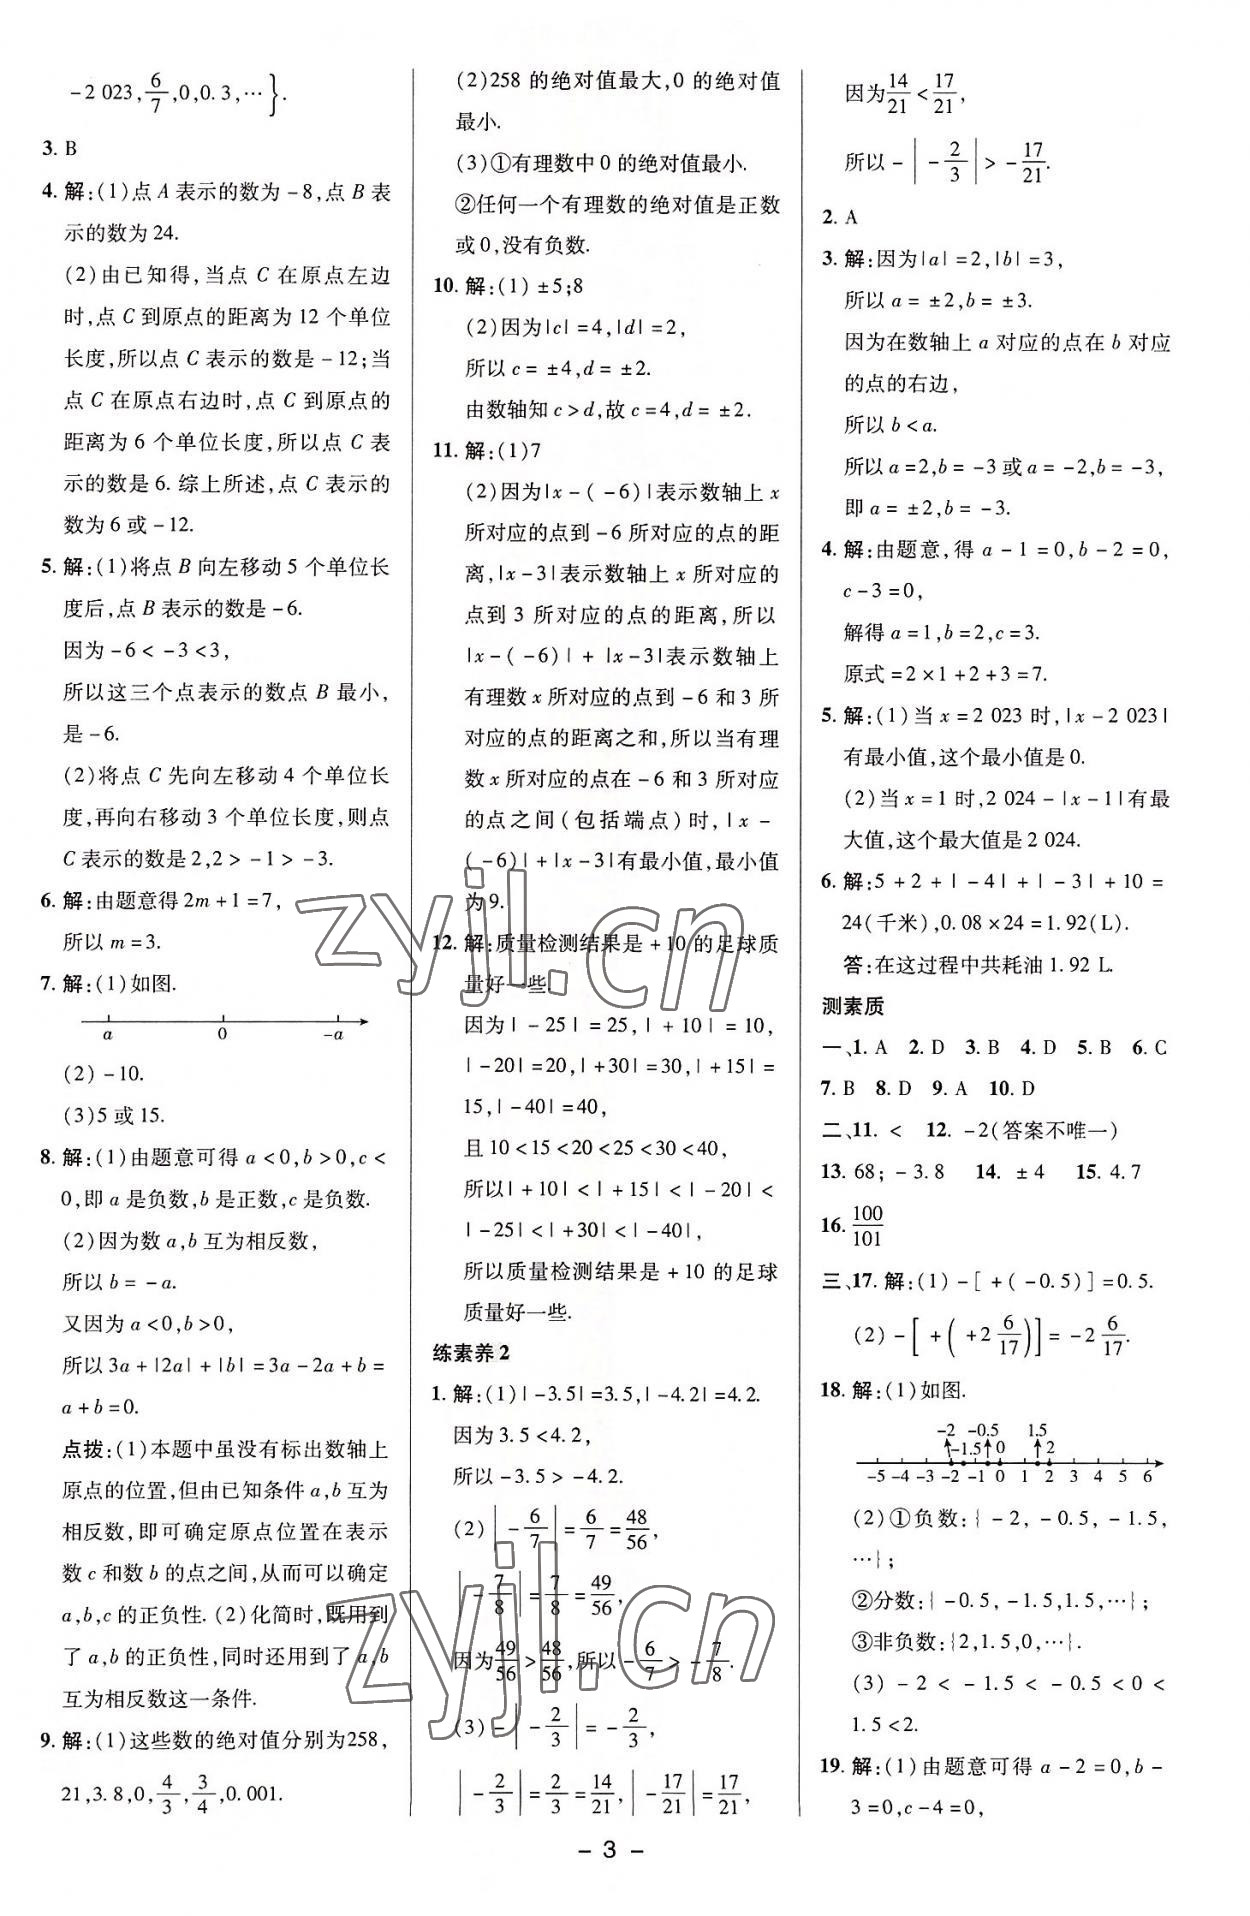 -2 023,6/7,0,0.3,…}.
3. B
4. 解:(1)点 A 表示的数为-8,点 B 表
示的数为 24.
(2)由已知得,当点 C 在原点左边
时,点 C 到原点的距离为 12 个单位
长度,所以点 C 表示的数是-12;当
点 C 在原点右边时,点 C 到原点的
距离为 6 个单位长度,所以点 C 表
示的数是 6. 综上所述,点 C 表示的
数为 6 或-12.
5. 解:(1)将点 B 向左移动 5 个单位长
度后,点 B 表示的数是-6.
因为-6<-3<3,
所以这三个点表示的数点 B 最小,
是-6.
(2)将点 C 先向左移动 4 个单位长
度,再向右移动 3 个单位长度,则点
C 表示的数是 2,2>-1>-3.
6. 解:由题意得 2m+1=7,
所以 m=3.
7. 解:(1)如图.
a 0 -a
(2)-10.
(3)5 或 15.
8. 解:(1)由题意可得 a<0,b>0,c<
0,即 a 是负数,b 是正数,c 是负数.
(2)因为数 a,b 互为相反数,
所以 b=-a.
又因为 a<0,b>0,
所以 3a+|2a|+|b|=3a-2a+b=
a+b=0.
点拨:(1)本题中虽没有标出数轴上
原点的位置,但由已知条件 a,b 互为
相反数,即可确定原点位置在表示
数 c 和数 b 的点之间,从而可以确定
a,b,c 的正负性. (2)化简时,既用到
了 a,b 的正负性,同时还用到了 a,b
互为相反数这一条件.
9. 解:(1)这些数的绝对值分别为258,
21,3.8,0,4/3,3/4,0.001.
(2)258 的绝对值最大,0 的绝对值
最小.
(3)①有理数中 0 的绝对值最小.
②任何一个有理数的绝对值是正数
或 0,没有负数.
10. 解:(1)±5;8
(2)因为|c|=4,|d|=2,
所以 c=±4,d=±2.
由数轴知 c>d,故 c=4,d=±2.
11. 解:(1)7
(2)因为|x-(-6)|表示数轴上 x
所对应的点到-6 所对应的点的距
离,|x-3|表示数轴上 x 所对应的
点到 3 所对应的点的距离,所以
|x-(-6)|+|x-3|表示数轴上
有理数 x 所对应的点到-6 和 3 所
对应的点的距离之和,所以当有理
数 x 所对应的点在-6 和 3 所对应
的点之间(包括端点)时,|x-
(-6)|+|x-3|有最小值,最小值
为 9.
12. 解:质量检测结果是+10 的足球质
量好一些.
因为|-25|=25,|+10|=10,
|-20|=20,|+30|=30,|+15|=
15,|-40|=40,
且 10<15<20<25<30<40,
所以|+10|<|+15|<|-20|<
|-25|<|+30|<|-40|,
所以质量检测结果是+10 的足球
质量好一些.
练素养 2
1. 解:(1)|-3.5|=3.5,|-4.2|=4.2.
因为 3.5<4.2,
所以-3.5>-4.2.
(2)|-6/7|=6/7=48/56,
|-7/8|=7/8=49/56,
因为49/56>48/56,所以-6/7>-7/8.
(3)-|-2/3|=-2/3,
|-2/3|=2/3=14/21,|-17/21|=17/21,
因为14/21<17/21,
所以-|-2/3|>-17/21.
2. A
3. 解:因为|a|=2,|b|=3,
所以 a=±2,b=±3.
因为在数轴上 a 对应的点在 b 对应
的点的右边,
所以 b<a.
所以 a=2,b=-3 或 a=-2,b=-3,
即 a=±2,b=-3.
4. 解:由题意,得 a-1=0,b-2=0,
c-3=0,
解得 a=1,b=2,c=3.
原式=2×1+2+3=7.
5. 解:(1)当 x=2 023 时,|x-2 023|
有最小值,这个最小值是 0.
(2)当 x=1 时,2 024-|x-1|有最
大值,这个最大值是 2 024.
6. 解:5+2+|-4|+|-3|+10=
24(千米),0.08×24=1.92(L).
答:在这过程中共耗油 1.92 L.
测素质
一、1. A 2. D 3. B 4. D 5. B 6. C
7. B 8. D 9. A 10. D
二、11. < 12. -2(答案不唯一)
13. 68;-3.8 14. ±4 15. 4.7
16. 100/101
三、17. 解:(1)-[+(-0.5)]=0.5.
(2)-[+(+2 6/17)]=-2 6/17.
18. 解:(1)如图.
-2 -0.5 1.5
-1.5 0 2
-5 -4 -3 -2 -1 0 1 2 3 4 5 6
(2)①负数:{-2,-0.5,-1.5,
…};
②分数:{-0.5,-1.5,1.5,…};
③非负数:{2,1.5,0,…}.
(3)-2<-1.5<-0.5<0<
1.5<2.
19. 解:(1)由题意可得 a-2=0,b-
3=0,c-4=0,
- 3 -
zyjl.cn
zyjl.cn